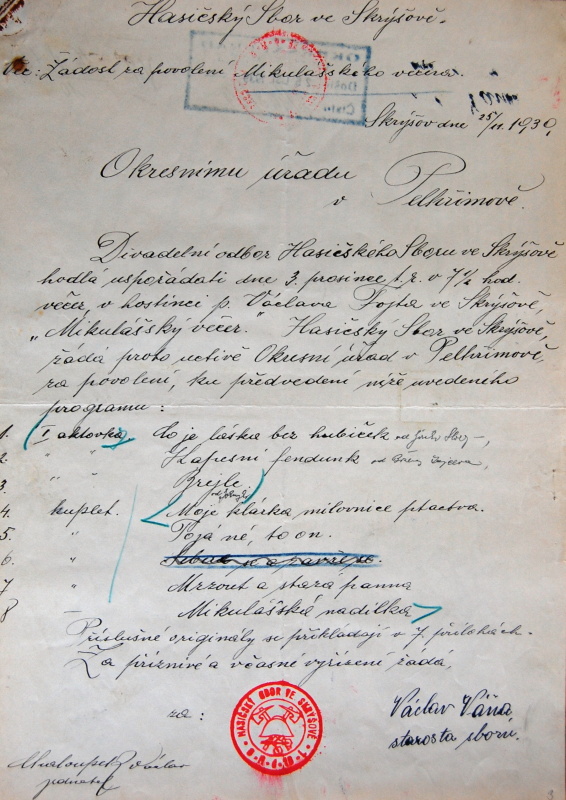 Hasičský Sbor ve Skrýšově.
Věc: Žádost za povolení Mikulášského večera.
Skrýšov dne 25/11. 1930.
Okresnímu úřadu
v Pelhřimově.
Divadelní odbor Hasičského Sboru ve Skrýšově
hodlá uspořádati dne 3. prosince t. r. v 7½ hod.
večer, v hostinci p. Václava Fojta ve Skrýšově,
„Mikulášský večer." Hasičský Sbor ve Skrýšově,
žádá proto uctivě Okresní úřad v Pelhřimově,
za povolení, ku předvedení níže uvedeného
programu:
1. I aktovka, Co je láska bez hubiček od
2 " " Kapesní fendunk od
3. Brejle.
4 kuplet. Moje klárka milovnice ptactva.
5. " To já né, to on.
6 "
7 " Mrzout a stará panna
8 – Mikulášská nadílka
Příslušné originály se přikládají v 7. přílohách.
Za příznivé a včasné vyřízení žádá,
za:
HASIČSKÝ SBOR VE SKRÝŠOVĚ
Václav Váňa
starosta sboru.
Václav
jednatel
3